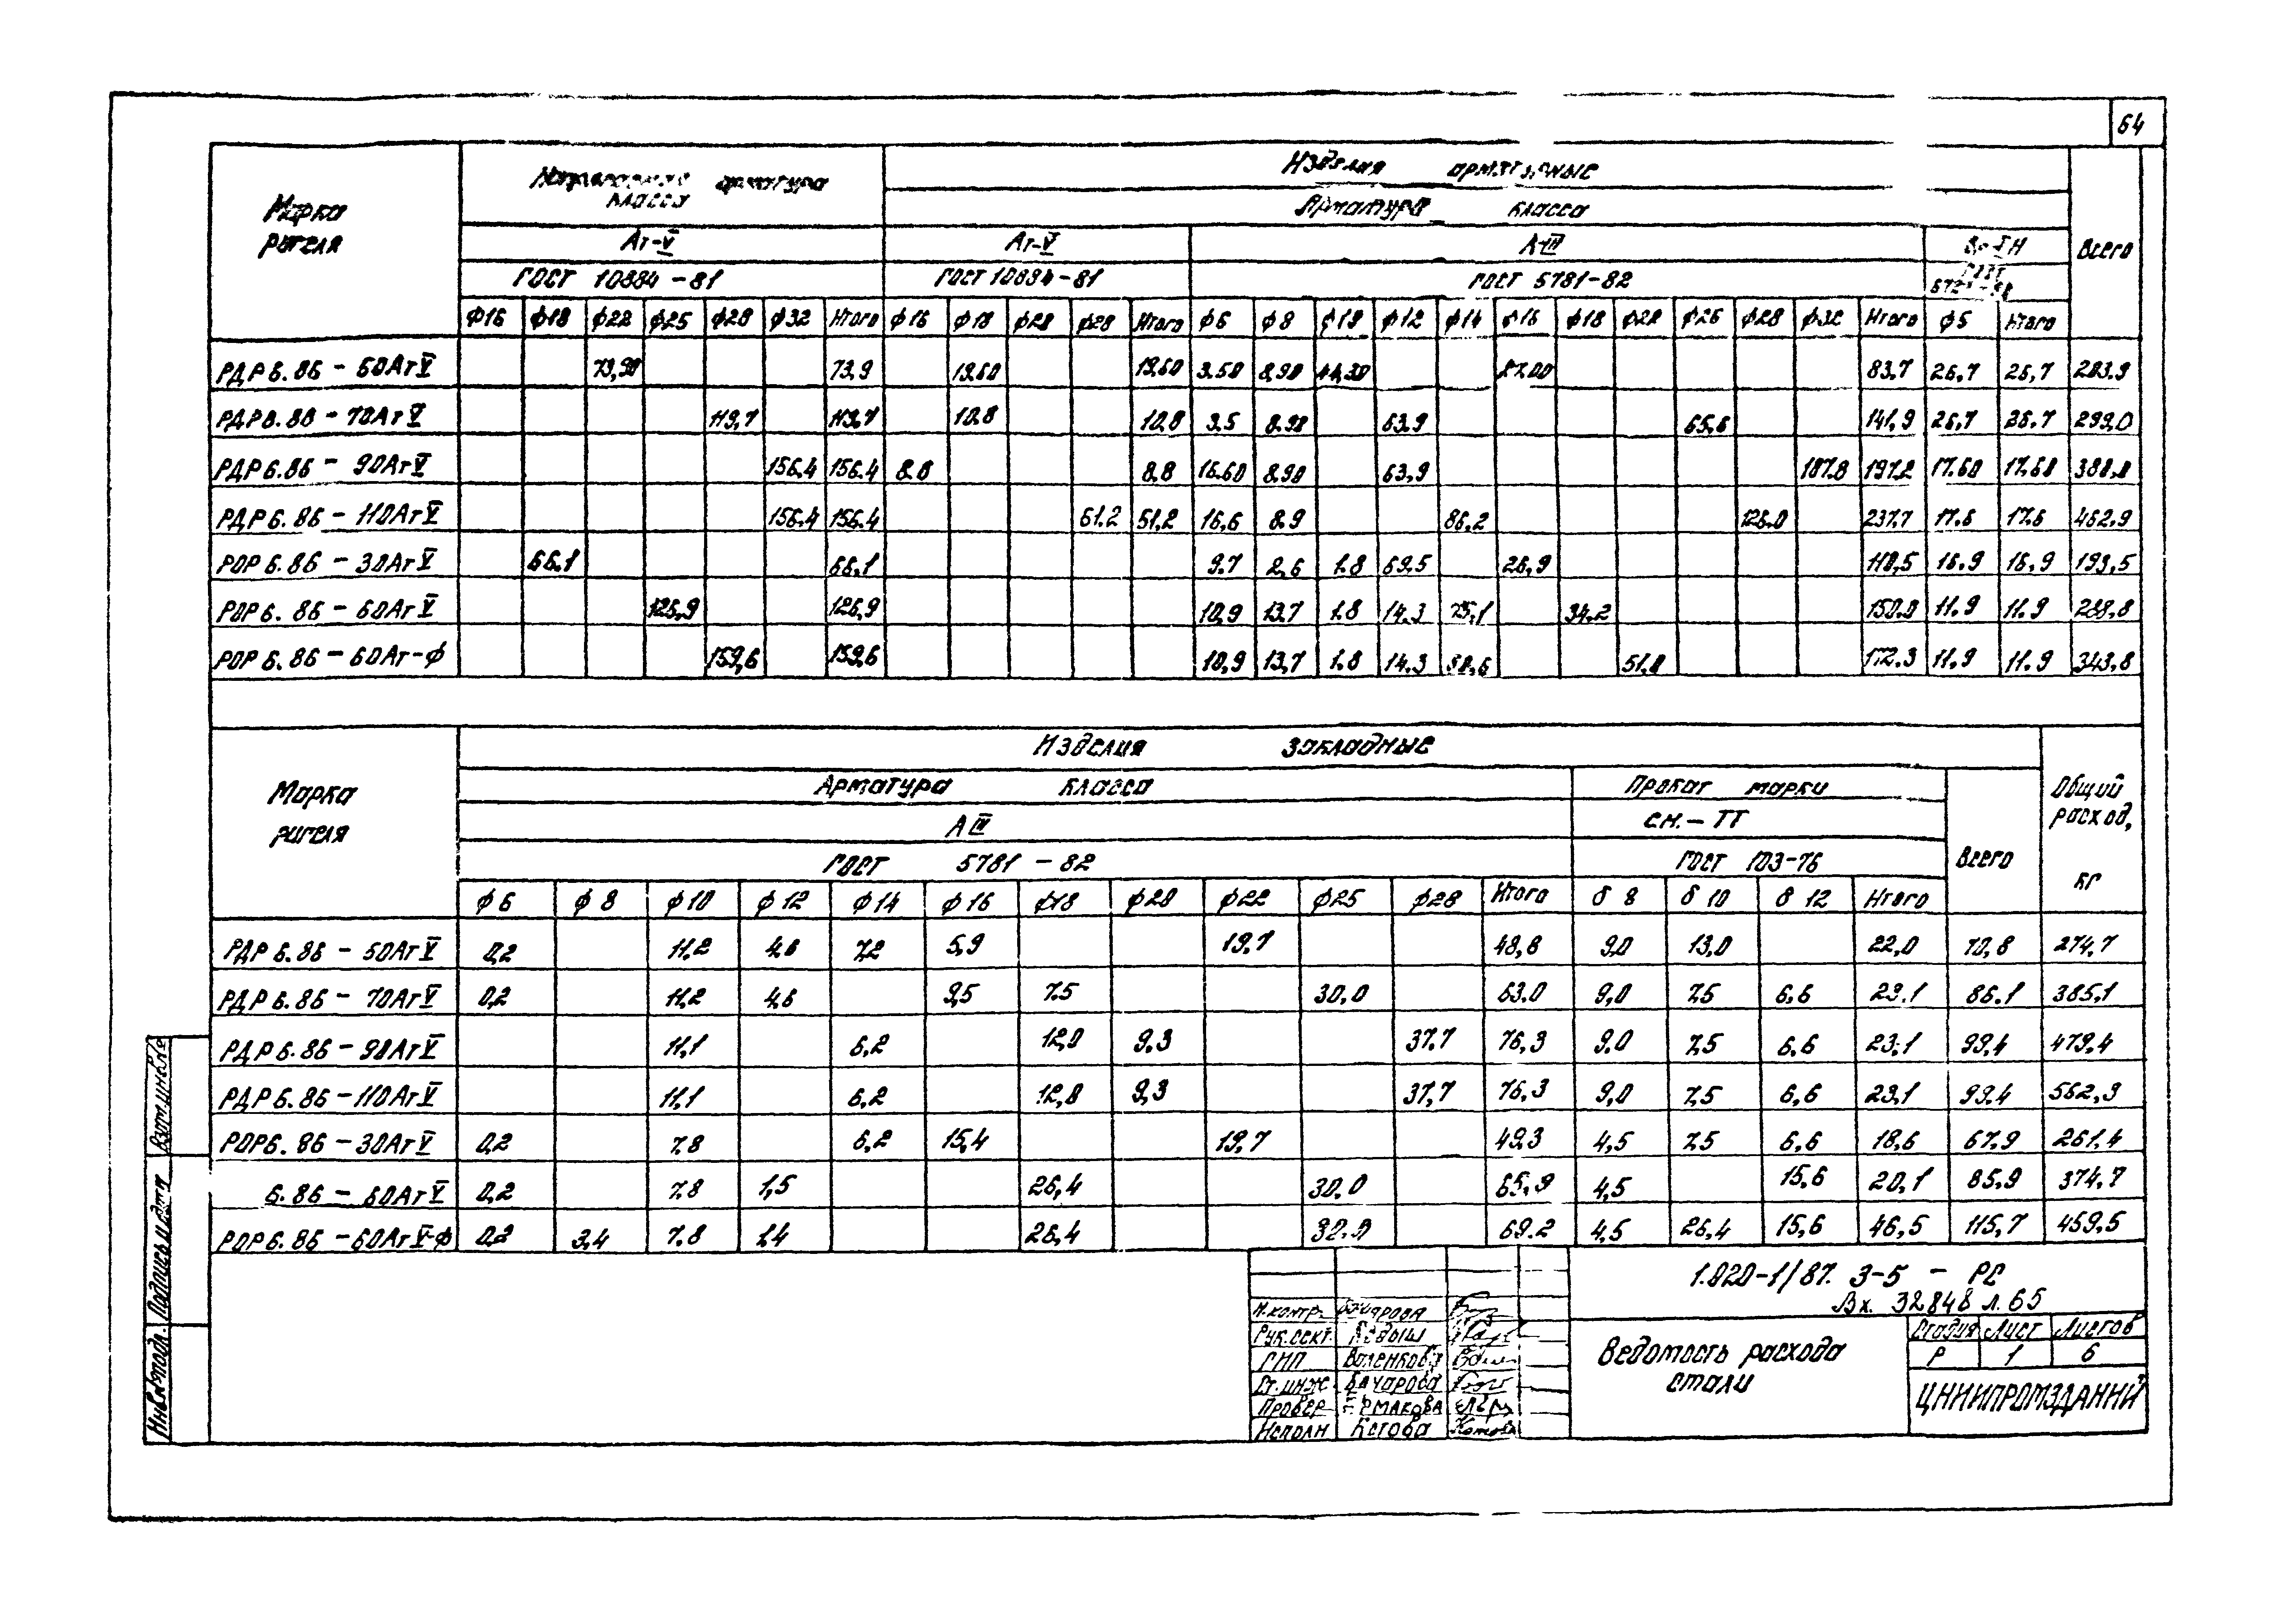 64
Марка ригеля
арматура класса
Изделия арматурные
Всего
Арматура класса
Ат-V Ат-V А-III
ГОСТ 10884-81 ГОСТ 10884-81 ГОСТ 5781-82
ф16 ф18 ф22 ф25 ф28 ф32 Итого ф16 ф18 ф28 Итого ф6 ф8 ф12 ф14 ф16 ф18 ф28 Итого ф5 Итого
РДР 6.86-50АтV 73,90 73,9 3.50 8.90 83.7 26,7 26,7
РДР 6.86-70АтV 119,7 119,7 10.8 10.8 3.5 8.90 63.9 65,6 141,9 26,7 26.7 299.0
РДР 6.86-90АтV 156.4 156.4 8.8 8.8 16.60 8.90 63,9 107.8 197.2 17.60 17.60
РДР 6.86-110АтV 156.4 156.4 51.2 51,2 16,6 8.9 86,2 126.0 237.7 17.6 17.6 462,9
РОР 6.86-30АтV 66.1 66.1 9.7 2,6 1.8 69.5 26,9 110,5 16.9 16,9 193,5
РОР 6.86-60АтV 126,9 126,9 10,9 13.7 1.8 14.3 75,1 34.2 150.0 11.9 11.9 288,8
РОР 6.86-60Ат-ф 159,6 159,6 10,9 13,7 1.8 14.3 51.8 172.3 11.9 11.9 343,8
Марка ригеля
Изделия закладные
Общий расход, кг
Арматура класса Прокат марки
Всего
А III см.-ТТ
ГОСТ 5781-82 ГОСТ 103-76
ф6 ф8 ф10 ф12 ф14 ф16 ф18 ф20 ф22 ф25 ф28 Итого δ 8 δ 10 δ 12 Итого
РДР 6.86-50АтV 0,2 11,2 4,6 7,2 5,9 19.7 48,8 9,0 13,0 22,0 70,8 274,7
РДР 6.86-70АтV 0,2 11,2 4,6 9,5 7.5 30,0 63.0 9,0 7,5 6,6 23.1 86.1 385,1
РДР 6.86-90АтV 11,1 6,2 12,0 9,3 37.7 76,3 9.0 7,5 6,6 23.1 99,4 479,4
РДР 6.86-110АтV 11,1 6,2 12,0 9,3 37,7 76,3 9,0 7,5 6,6 23,1 99.4 562,3
РОР6.86-30АтV 0,2 7.8 6,2 15,4 19,7 49.3 4,5 7,5 6,6 18,6 67,9 261.4
6.86-60АтV 0,2 7.8 1,5 26,4 30.0 65,9 4,5 15,6 20,1 85.9 374,7
РОР6.86-60АтV-ф 0,2 3,4 7.8 1.4 26,4 69.2 4,5 26,4 15,6 46,5 115,7 459.5
1.020-1/87. 3-5 - РС
Вх. 32848 л.65
Н.контр. Бочарова
Рук.сект. Кодыш
ГИП
Ст.инж. Бочарова
Провер Ермакова
Исполн Котова
Ведомость расхода стали
Стадия Лист Листов
Р 1 6
ЦНИИПРОМЗДАНИЙ
Инв.№подл. Подпись и дата Взам.инв.№